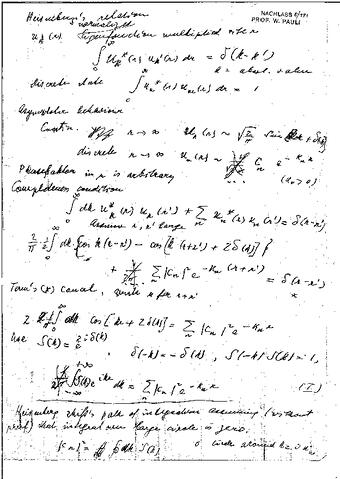 NACHLASS
PROF. W. PAULI
Heisenberg's relation
u_k(r) normalized eigenfunction multiplied with r
∫_0^∞ u_k^*(r) u_k'(r) dr = δ(k-k')
k = absol. value
discrete state ∫_0^∞ u_n^*(r) u_n(r) dr = 1
Asymptotic behaviour
Contin. r → ∞ u_k(r) ~ √(2/π) sin (kr + δ(k))
discrete r → ∞ u_n(r) ~ C_n e^{-K_n r}
Phasefaktor in n is arbitrary (K_n > 0)
Completeness condition
∫_0^∞ dk u_k^*(r) u_k(r') + Σ_n u_n^*(r) u_n(r') = δ(r-r')
Assume r, r' large
2/π · 1/2 ∫_0^∞ dk { cos k(r-r') - cos [k(r+r') + 2δ(k)] }
+ Σ_n |C_n|² e^{-K_n(r+r')} = δ(r-r')
Term's (*) cancel, write r for r+r'
∫_0^∞ dk cos [kr + 2δ(k)] = Σ_n |C_n|² e^{-K_n r}
Use S(k) = e^{2iδ(k)}
δ(-k) = -δ(k), S(-k) S(k) = 1,
∫_{-∞}^{+∞} S(k) e^{ikr} dk = Σ_n |C_n|² e^{-K_n r} (I)
Heisenberg shifts path of integration assuming (without
proof) that integral over large circle is zero.
|C_n|² = ∮ dk S(k) circle around k = i K_n